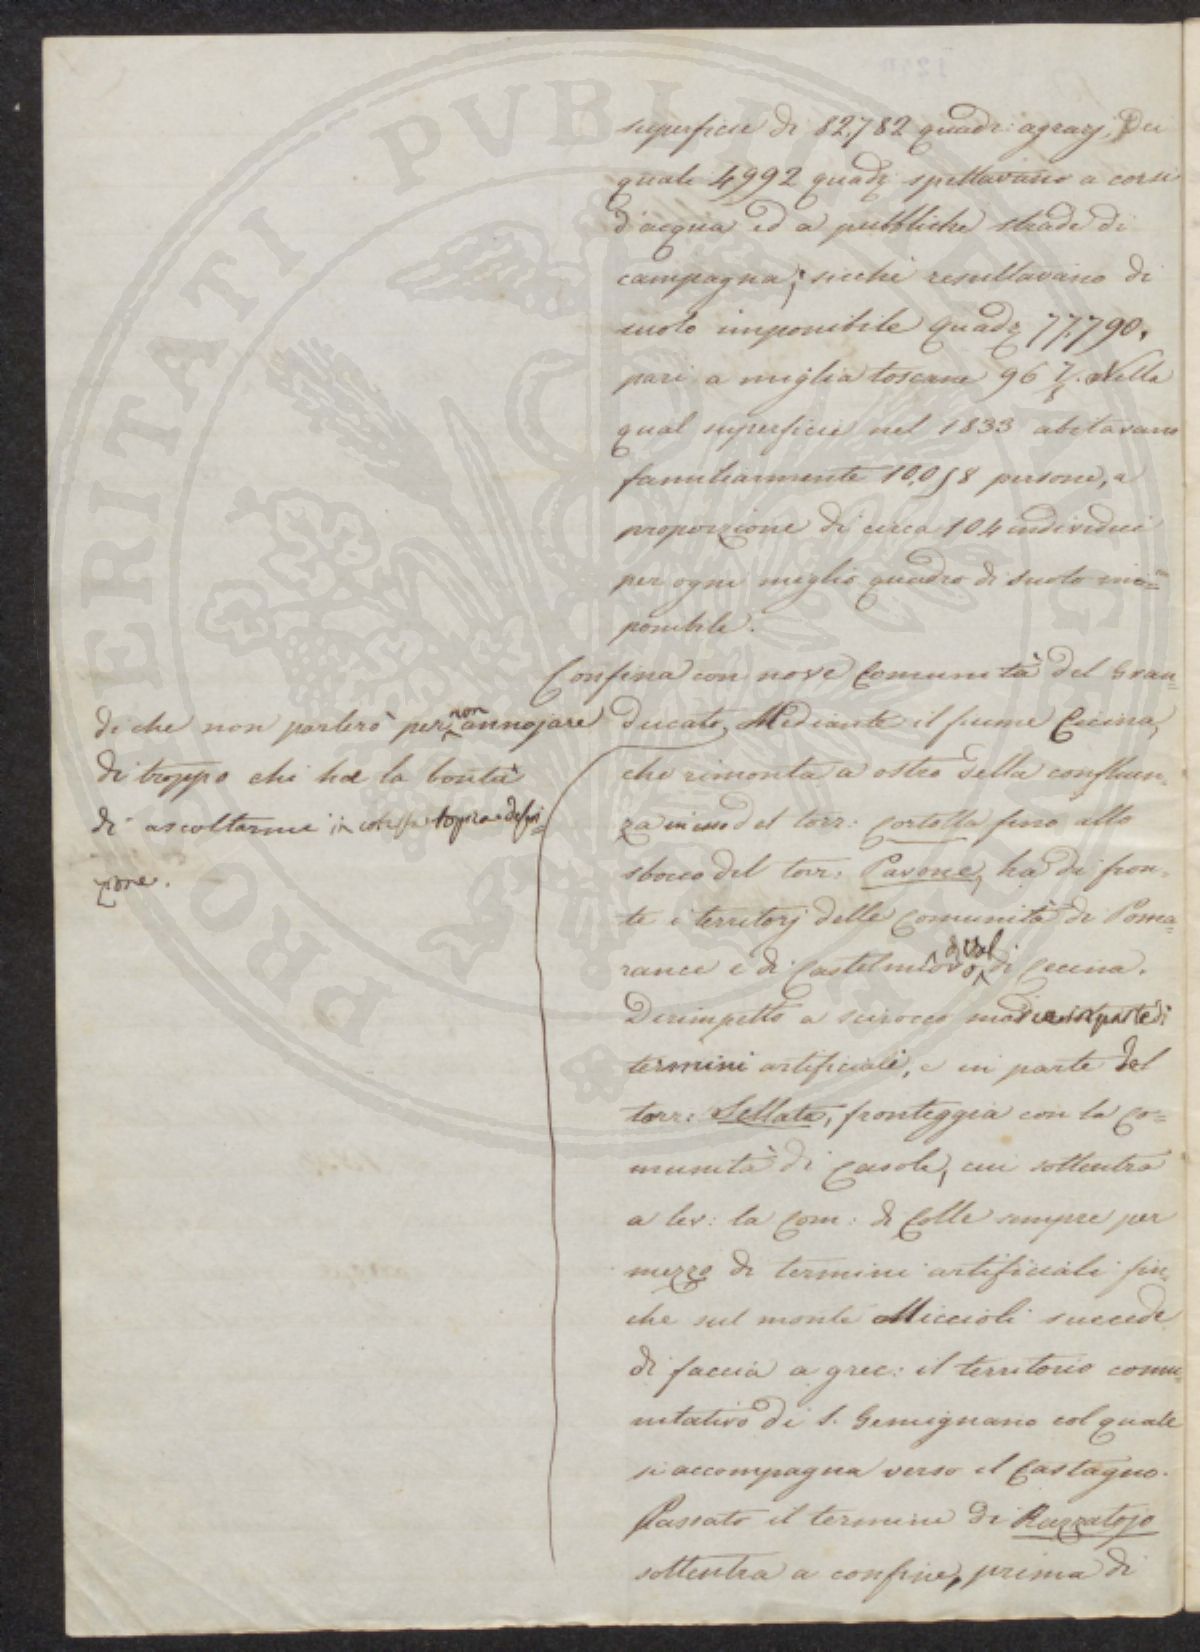 superficie di 82,782 quadr: agrarj. Dei
quali 4992 quadr spettavano a corsi
d'acqua ed a pubbliche strade di
campagna; sicchè resultavano di
suolo imponibile Quadr 77,790,
pari a miglia toscane 96 7/8. Nella
qual superficie nel 1833 abitavano
familiarmente 10,058 persone, a
proporzione di circa 104 individui
per ogni miglio quadro di suolo im=
ponibile.
Confina con nove Comunità del Gran=
ducato, Mediante il fiume Cecina,
che rimonta a ostro della confluen=
za in esso del torr: Cortolla fino allo
sbocco del torr: Pavone, ha di fron=
te i territorj delle Comunità di Poma=
rance e di Castelnuovo di Val di Cecina.
Dirimpetto a scirocco mediante in parte di
termini artificiali, e in parte del
torr: Sellate, fronteggia con la Co=
munità di Casole, cui sottentra
a lev: la Com: di Colle sempre per
mezzo di termini artificiali fin=
che sul monte Miccioli succede
di faccia a grec: il territorio comu=
nitativo di S. Gemignano col quale
si accompagna verso il Castagno.
Passato il termine di Razzatojo
sottentra a confine, prima di
di che non parlerò per non annojare
di troppo chi ha la bontà
di ascoltarmi in cotesta topica defini=
zione.
PROSPERITATI PVBLICAE